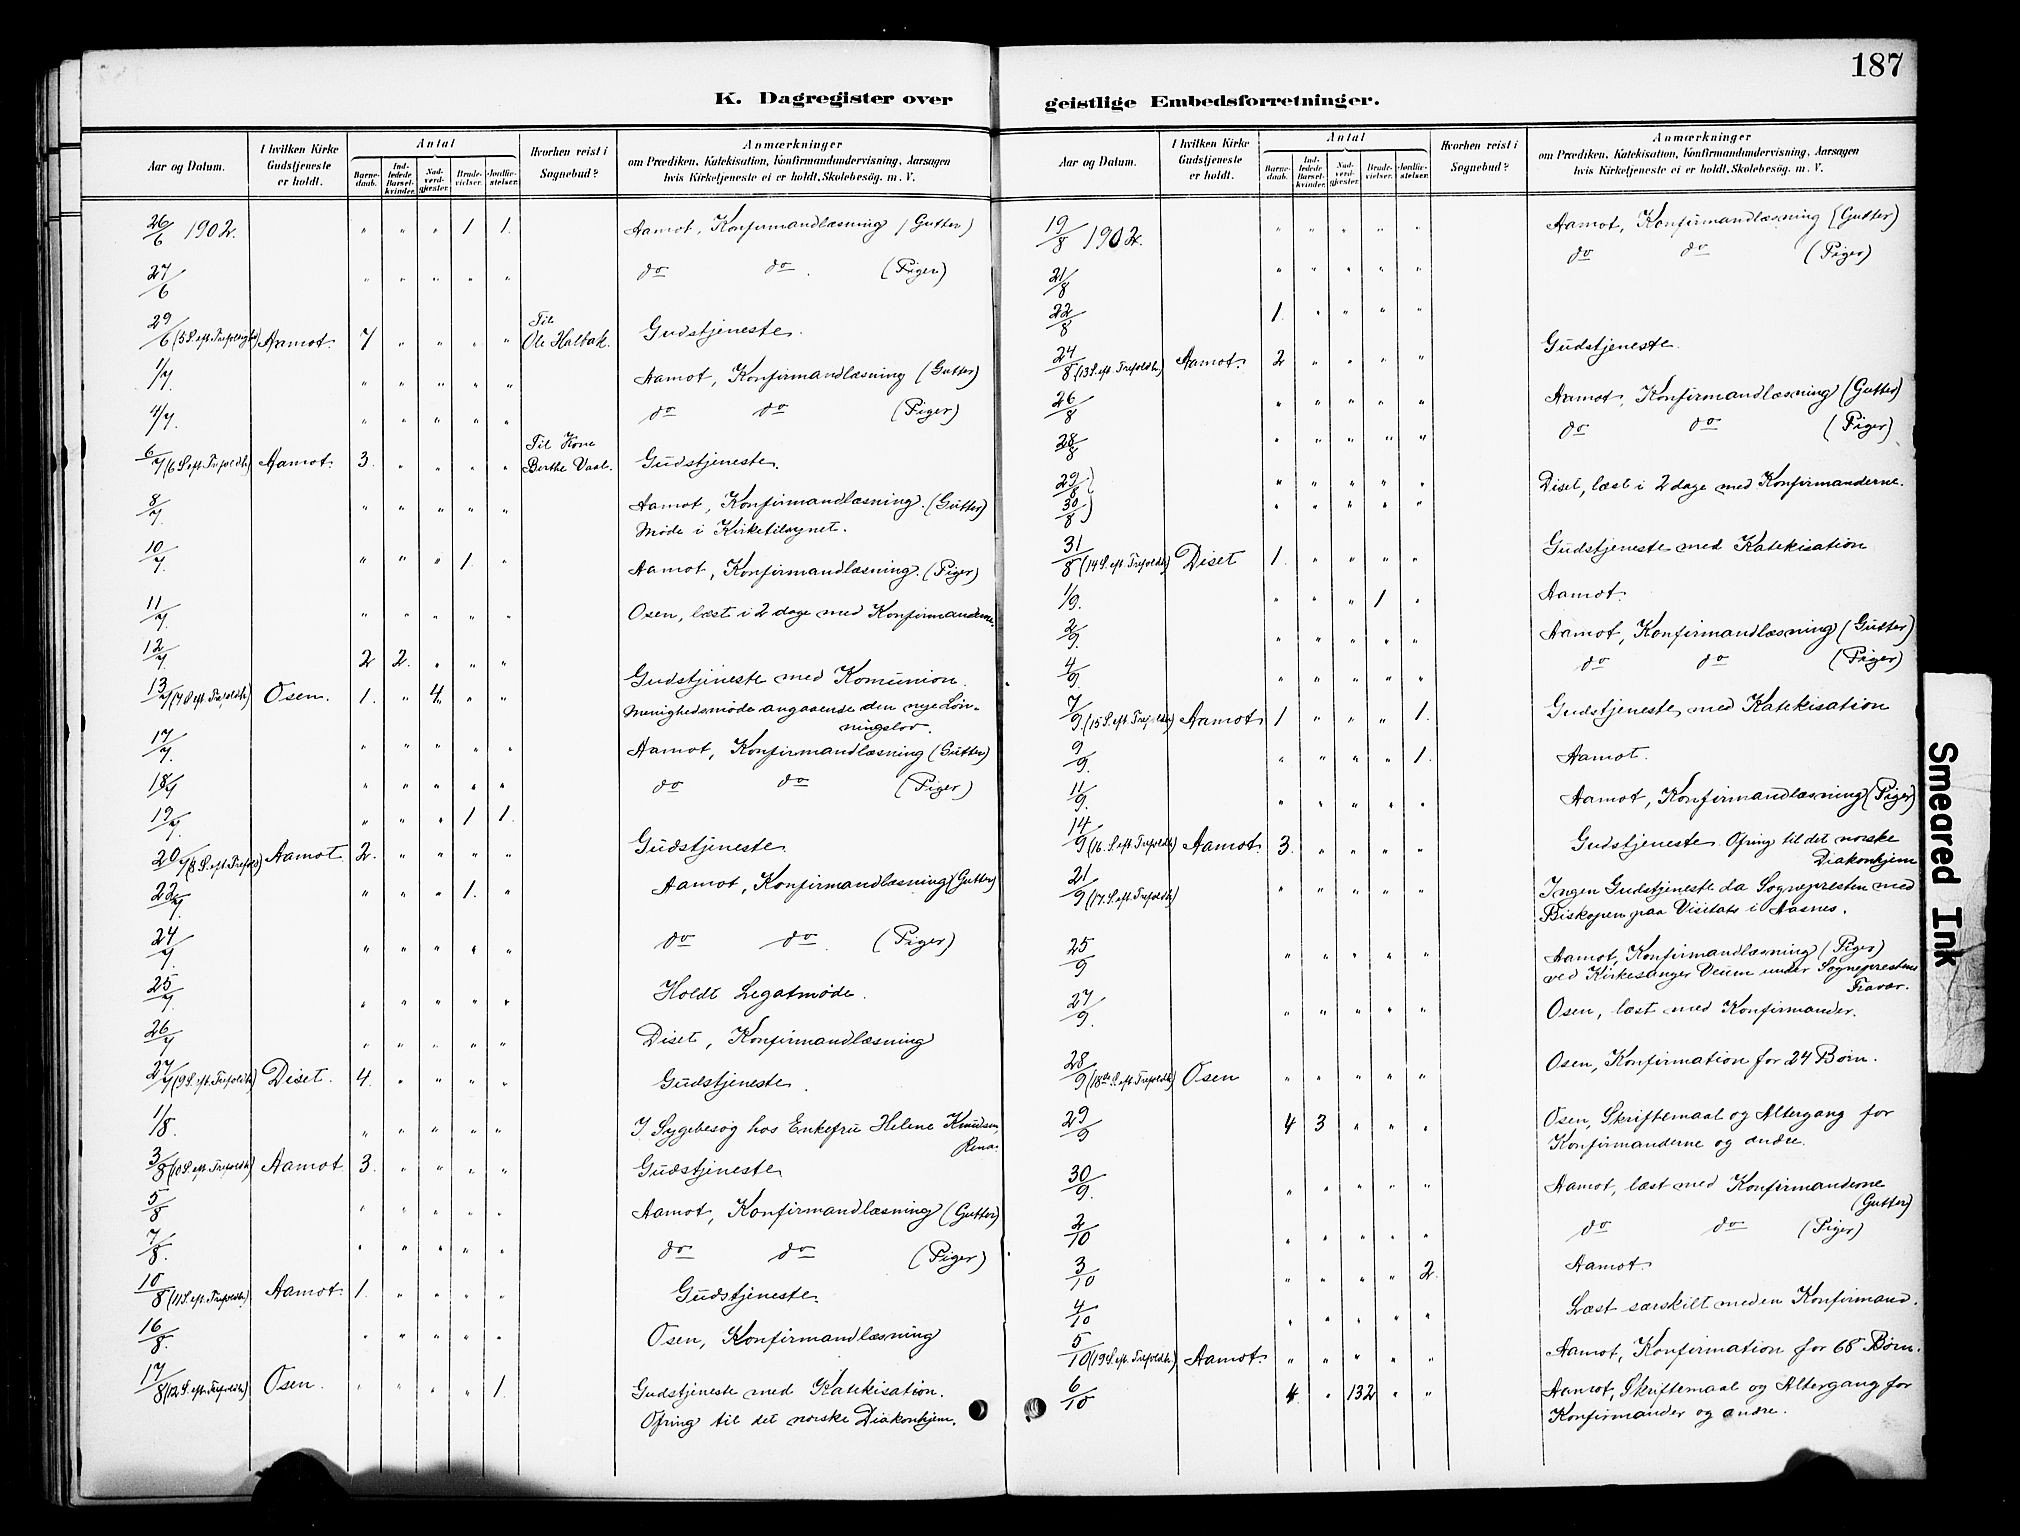 187
K. Dagregister over geistlige Embedsforretninger.
Aar og Datum. | I hvilken Kirke Gudstjeneste er holdt. | Antal | Barnedaab. | Indledede Barselkvinder. | Nadverdgjester. | Brudevielser. | Jordfæstelser. | Hvorhen reist i Sognebud? | Anmærkninger om Prædiken, Katekisation, Konfirmandundervisning, Aarsagen hvis Kirketjeneste ei er holdt, Skolebesøg. m. V.
26/6 1902. " " " 1 1. Aamot, Konfirmandlæsning (Gutter)
27/6 " " " " " do do. (Piger)
29/6 (5 S. eft. Trefoldigh) Aamot. 7 " " " " Til Ole Halbak. Gudstjeneste.
1/7. " " " " " Aamot, Konfirmandlæsning (Gutter)
4/7. " " " " " do do (Piger)
6/7 (6 S. eft. Trefoldh.) Aamot. 3. " " " " Til Kone Berthe Vaal. Gudstjeneste.
8/7 " " " " " Aamot, Konfirmandlæsning. (Gutter)
Møde i Kirketilsynet.
10/7. " " " 1. " Aamot, Konfirmandlæsning. (Piger)
11/7. " " " " " Osen, læst i 2 dage med Konfirmanderne.
12/7 2 2. " " "
13/7 (7 S. eft. Trefoldh) Osen. 1. " 4 " " Gudstjeneste med Komunion.
Menighedsmøde angaaende den nye Løn-
ningslov.
17/7. " " " " " Aamot, Konfirmandlæsning (Gutter)
18/7 " " " " " do do (Piger)
19/7. " " " 1 1.
20/7 (8 S. eft. Trefold) Aamot 2. " " " " Gudstjeneste.
22/7. " " " 1. " Aamot, Konfirmandlæsning (Gutter)
24/7. " " " " " do do. (Piger)
25/7 " " " " " Holdt Legatmøde.
26/7 " " " " " Diset, Konfirmandlæsning
27/7 (9 S. eft. Trefoldh) Diset. 4. " " " " Gudstjeneste.
1/8. " " " " " I Sygebesøg hos Enkefru Helene Knudsen,
Rena.
3/8 (10 S. eft. Trefoldh) Aamot 3. " " " " Gudstjeneste
5/8 " " " " " Aamot, Konfirmandlæsning (Gutter)
7/8. " " " " " do do (Piger)
10/8 (11 S. eft. Trefoldh.) Aamot. 1. " " " " Gudstjeneste.
16/8. " " " " " Osen, Konfirmandlæsning
17/8 (12 S. eft. Trefoldh) Osen. " " " " 1. Gudstjeneste med Katekisation.
Ofring til det norske Diakonhjem.
Aar og Datum. | I hvilken Kirke Gudstjeneste er holdt. | Antal | Barnedaab. | Indledede Barselkvinder. | Nadverdgjester. | Brudevielser. | Jordfæstelser. | Hvorhen reist i Sognebud? | Anmærkninger om Prædiken, Katekisation, Konfirmandundervisning, Aarsagen hvis Kirketjeneste ei er holdt, Skolebesøg. m. V.
19/8 1902. " " " " " Aamot, Konfirmandlæsning (Gutter)
21/8 " " " " " do do (Piger)
22/8 1. " " " "
24/8 (13 S. eft. Trefoldh.) Aamot. 2 " " " " Gudstjeneste.
26/8 " " " " " Aamot, Konfirmandlæsning (Gutter)
28/8 " " " " " do do (Piger)
29/8) " " " " " Diset, læst i 2 dage med Konfirmanderne.
30/8) " " " " "
31/8 (14 S. eft. Trefoldh) Diset 1. " " " " Gudstjeneste med Katekisation
1/9. " " " 1 " Aamot.
2/9. " " " " " Aamot, Konfirmandlæsning (Gutter)
4/9. " " " " " do do (Piger)
7/9. (15 S. eft. Trefoldh) Aamot 1 " " " 1. Gudstjeneste med Katekisation
9/9. " " " " 1. Aamot.
11/9. " " " " " Aamot, Konfirmandlæsning (Piger)
14/9 (16. S. eft. Trefoldh) Aamot. 3. " " " " Gudstjeneste. Ofring til det norske
Diakonhjem
21/9 (17. S. eft. Trefoldh) " " " " " Ingen Gudstjeneste da Sognepresten med
Biskopen paa Visitats i Aasnes.
25/9 " " " " " Aamot, Konfirmandlæsning (Piger)
ved Kirkesanger Veum under Sogneprestens
Fravær.
27/9. " " " " " Osen, læst med Konfirmander.
28/9 (18de S. eft. Trefoldh) Osen " " " " " Osen, Konfirmation for 24 Børn.
29/9 4 3 " " " Osen, Skriftemaal og Altergang for
Konfirmanderne og andre.
30/9. " " " " " Aamot, læst med Konfirmanderne
(Gutter)
2/10 " " " " " do do (Piger)
3/10 " " " " 2. Aamot.
4/10 " " " " " Læst særskilt med en Konfirmand.
5/10 (19 S. eft. Trefoldh.) Aamot. " " " " " Aamot, Konfirmation for 68 Børn.
6/10 4. " 132 " " Aamot, Skriftemaal og Altergang for
Konfirmander og andre.
Smeared Ink